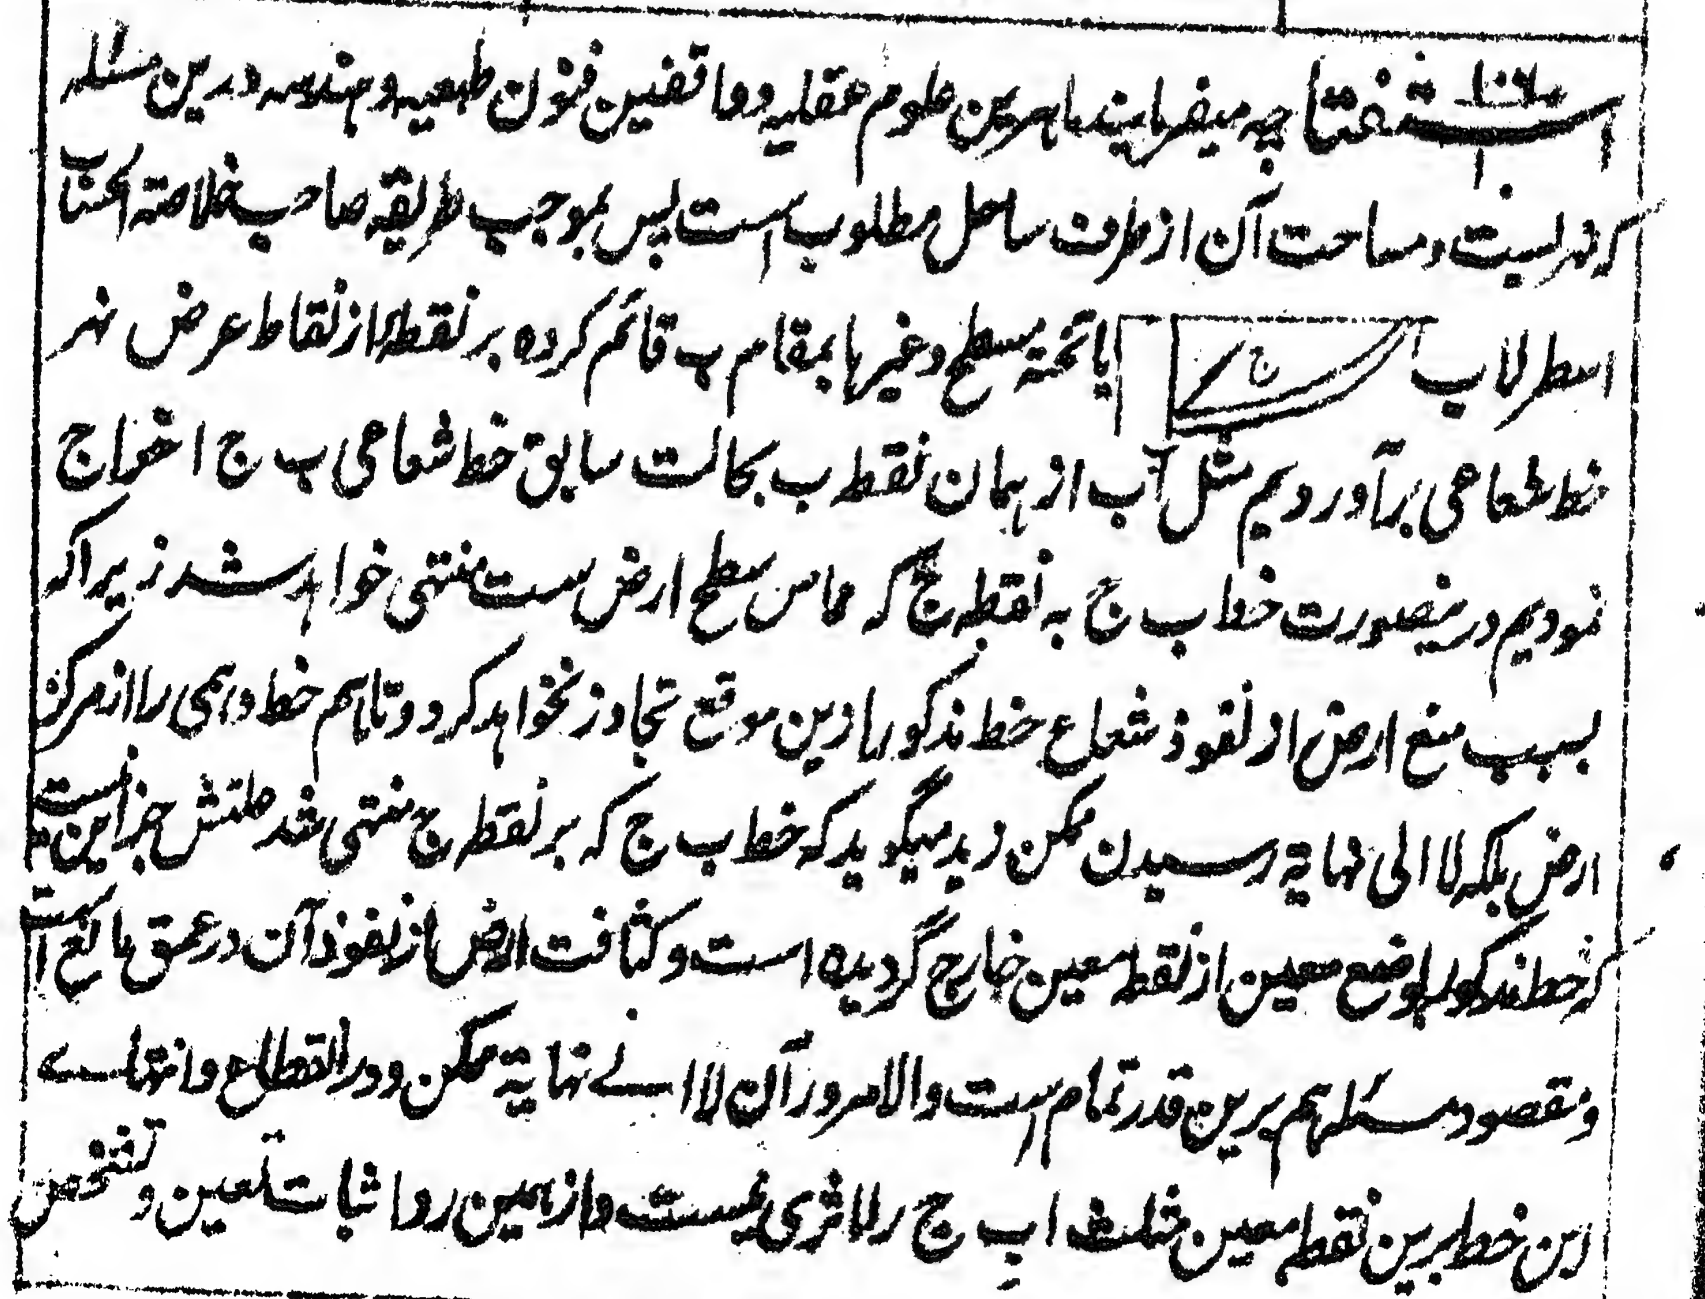 استفتا چه میفرمایند ماهرین علوم عقلیه و واقفین فنون طبعیه و هندسه درین مسئله
که نهریست و مساحت آن از طرف ساحل مطلوب است پس بموجب طریقه صاحب خلاصة الحساب
اسطرلاب ج یا تخته مسطح و غیرها بمقام ب قائم کرده بر نقطه از نقاط عرض نهر
خط شعاعی برآوردیم مثل آب از همان نقطه ب بحالت سابق خط شعاعی ب ج اخراج
نمودیم درینصورت خط ب ج به نقطه ج که مماس سطح ارض ست منتهی خواهد شد زیراکه
بسبب منع ارض از نفوذ شعاع خط مذکور ازین موقع تجاوز نخواهد کرد و تاهم خط وهمی را از مرکز
ارض بلکه لا الی نهایة رسیدن ممکن زید میگوید که خط ب ج که بر نقطه ج منتهی شد علتش جز این نیست
که خط مذکور بوضع معین از نقطه معین خارج گردیده است و کثافت ارض از نفوذ آن در عمق مانع است
و مقصود مسئله هم برین قدر تمام است والا مرور آن لا الے نهایة ممکن و در انقطاع و انتهاے
این خط برین نقطه معین مثلث اب ج را اثری نیست و ازهمین رو اثبات تعین و تشخص